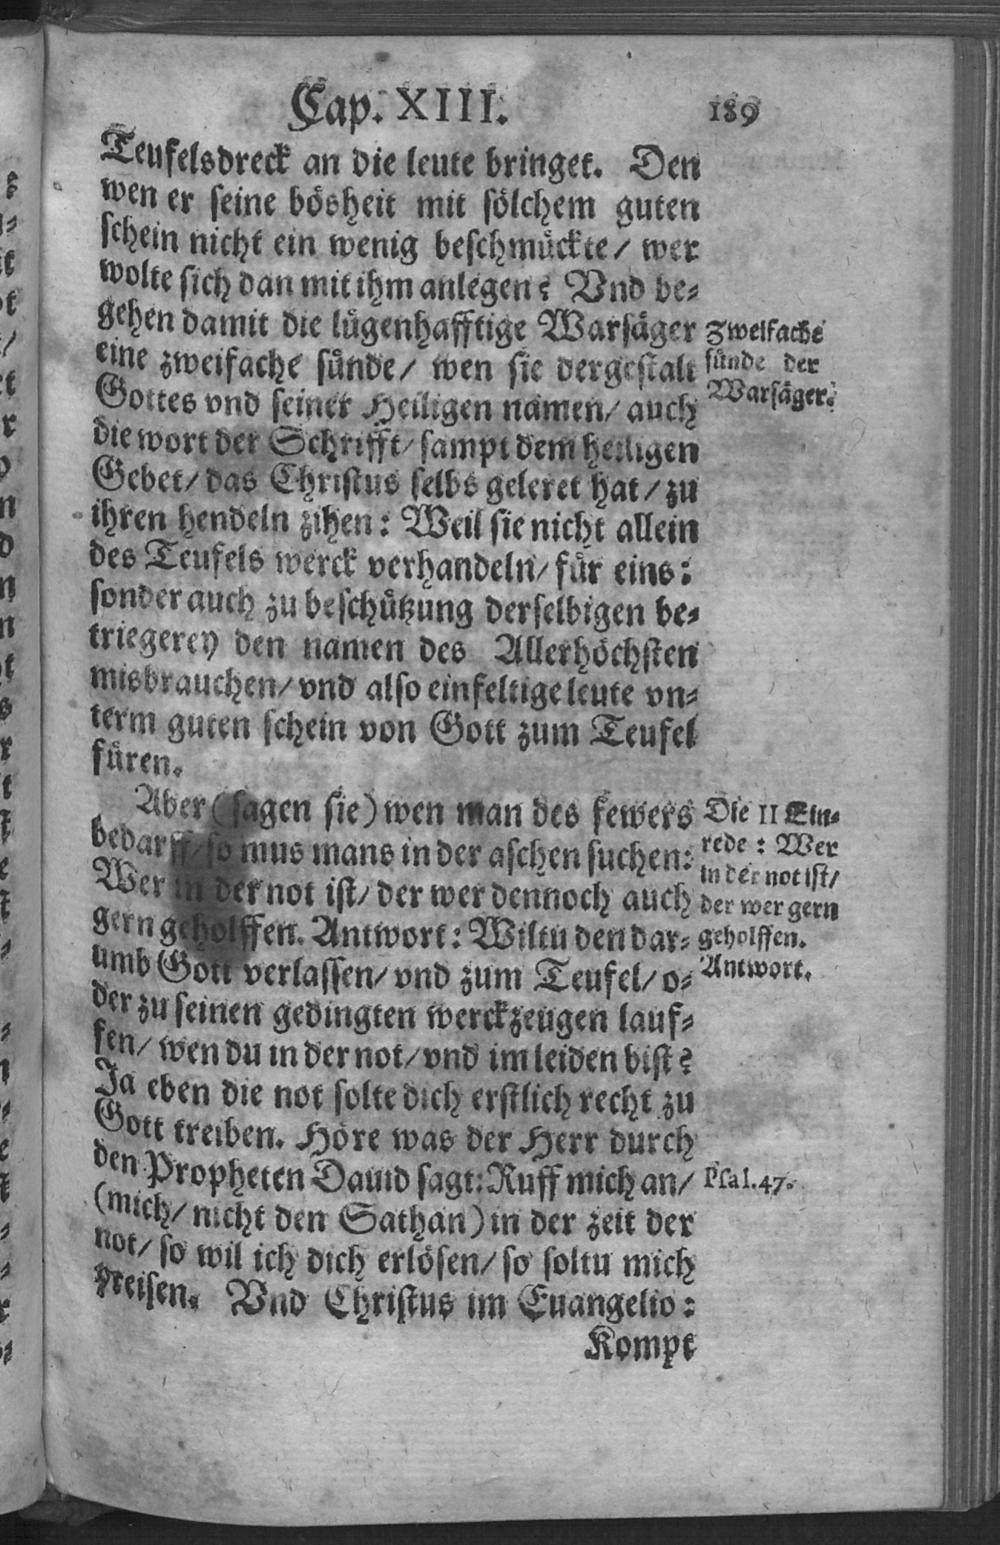 Cap. XIII. 189
Teufelsdreck an die leute bringet. Den
wen er seine bösheit mit sölchem guten
schein nicht ein wenig beschmückte/ wer
wolte sich dan mit ihm anlegen? Vnd be⸗
gehen damit die lügenhafftige Warsäger
eine zweifache sünde/ wen sie dergestalt
Gottes vnd seiner Heiligen namen/ auch
die wort der Schrifft/ sampt dem heiligen
Gebet/ das Christus selbs geleret hat/ zu
ihren hendeln zihen: Weil sie nicht allein
des Teufels werck verhandeln/ für eins:
sonder auch zu beschützung derselbigen be⸗
triegerey den namen des Allerhöchsten
misbrauchen/ vnd also einfeltige leute vn⸗
term guten schein von Gott zum Teufel
füren.
Zweifache
sünde der
Warsäger.
Aber (sagen sie) wen man des fewers
bedarff/ so mus mans in der aschen suchen:
Wer in der not ist/ der wer dennoch auch
gern geholffen. Antwort: Wiltu den dar⸗
umb Gott verlassen/ vnd zum Teufel/ o⸗
der zu seinen gedingten werckzeugen lauf⸗
fen/ wen du in der not/ vnd im leiden bist?
Ja eben die not solte dich erstlich recht zu
Gott treiben. Höre was der Herr durch
den Propheten Dauid sagt: Ruff mich an/
(mich/ nicht den Sathan) in der zeit der
not/ so wil ich dich erlösen/ so soltu mich
preisen. Vnd Christus im Euangelio:
Die II Ein⸗
rede: Wer
in der not ist/
der wer gern
geholffen.
Antwort.
Psal. 47.
Kompt